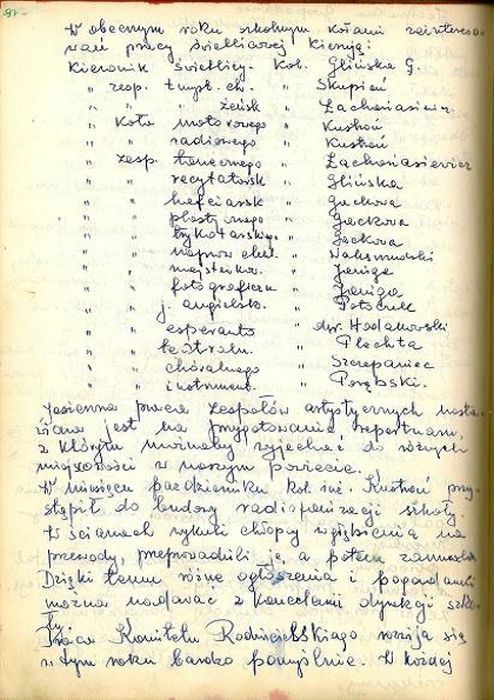 W obecnym roku szkolnym kołami zaintereso-
wań pracy świetlicowej kierują:
Kierownik świetlicy - Kol. Glińska G.
" zesp. tmyst. ch. " Skupień
" " żeńsk " Zachoniasiewicz
" Koła motorowego " Kustroń
" " radiowego " Kustroń
" zesp. tanecznego " Zachoniasiewicz
" " recytatorsk " Glińska
" " hafciarsk " Gackowa
" " plastycznego " Gackowa
" " trykotarskiego " Gackowa
" " napraw elek. " Waksmundzki
" " majsterkow. " Jeniga
" " fotograficzn " Jeniga
" " j. angielsk. " Potoczek
" " esperanto " dyr. Hodakowski
" " teatraln. " Plechta
" " chóralnego " Szczepaniec
" " instrument. " Porębski.
Jesienna praca zespołów artystycznych nasta-
wiona jest na przygotowania repertuaru,
z którym możnaby wyjechać do różnych
miejscowości w naszym powiecie.
W miesiącu październiku kol. inż. Kustroń przy-
stąpił do budowy radiofonizacji szkoły.
W ścianach wykuli chłopcy wgłębienia na
przewody, przeprowadzili je, a potem
Dzięki temu różne ogłoszenia i pogadanki
można nadawać z kancelarii dyrekcji szko-
ły.
Praca Komitetu Rodzicielskiego rozwija się
w tym roku bardzo pomyślnie. W każdej